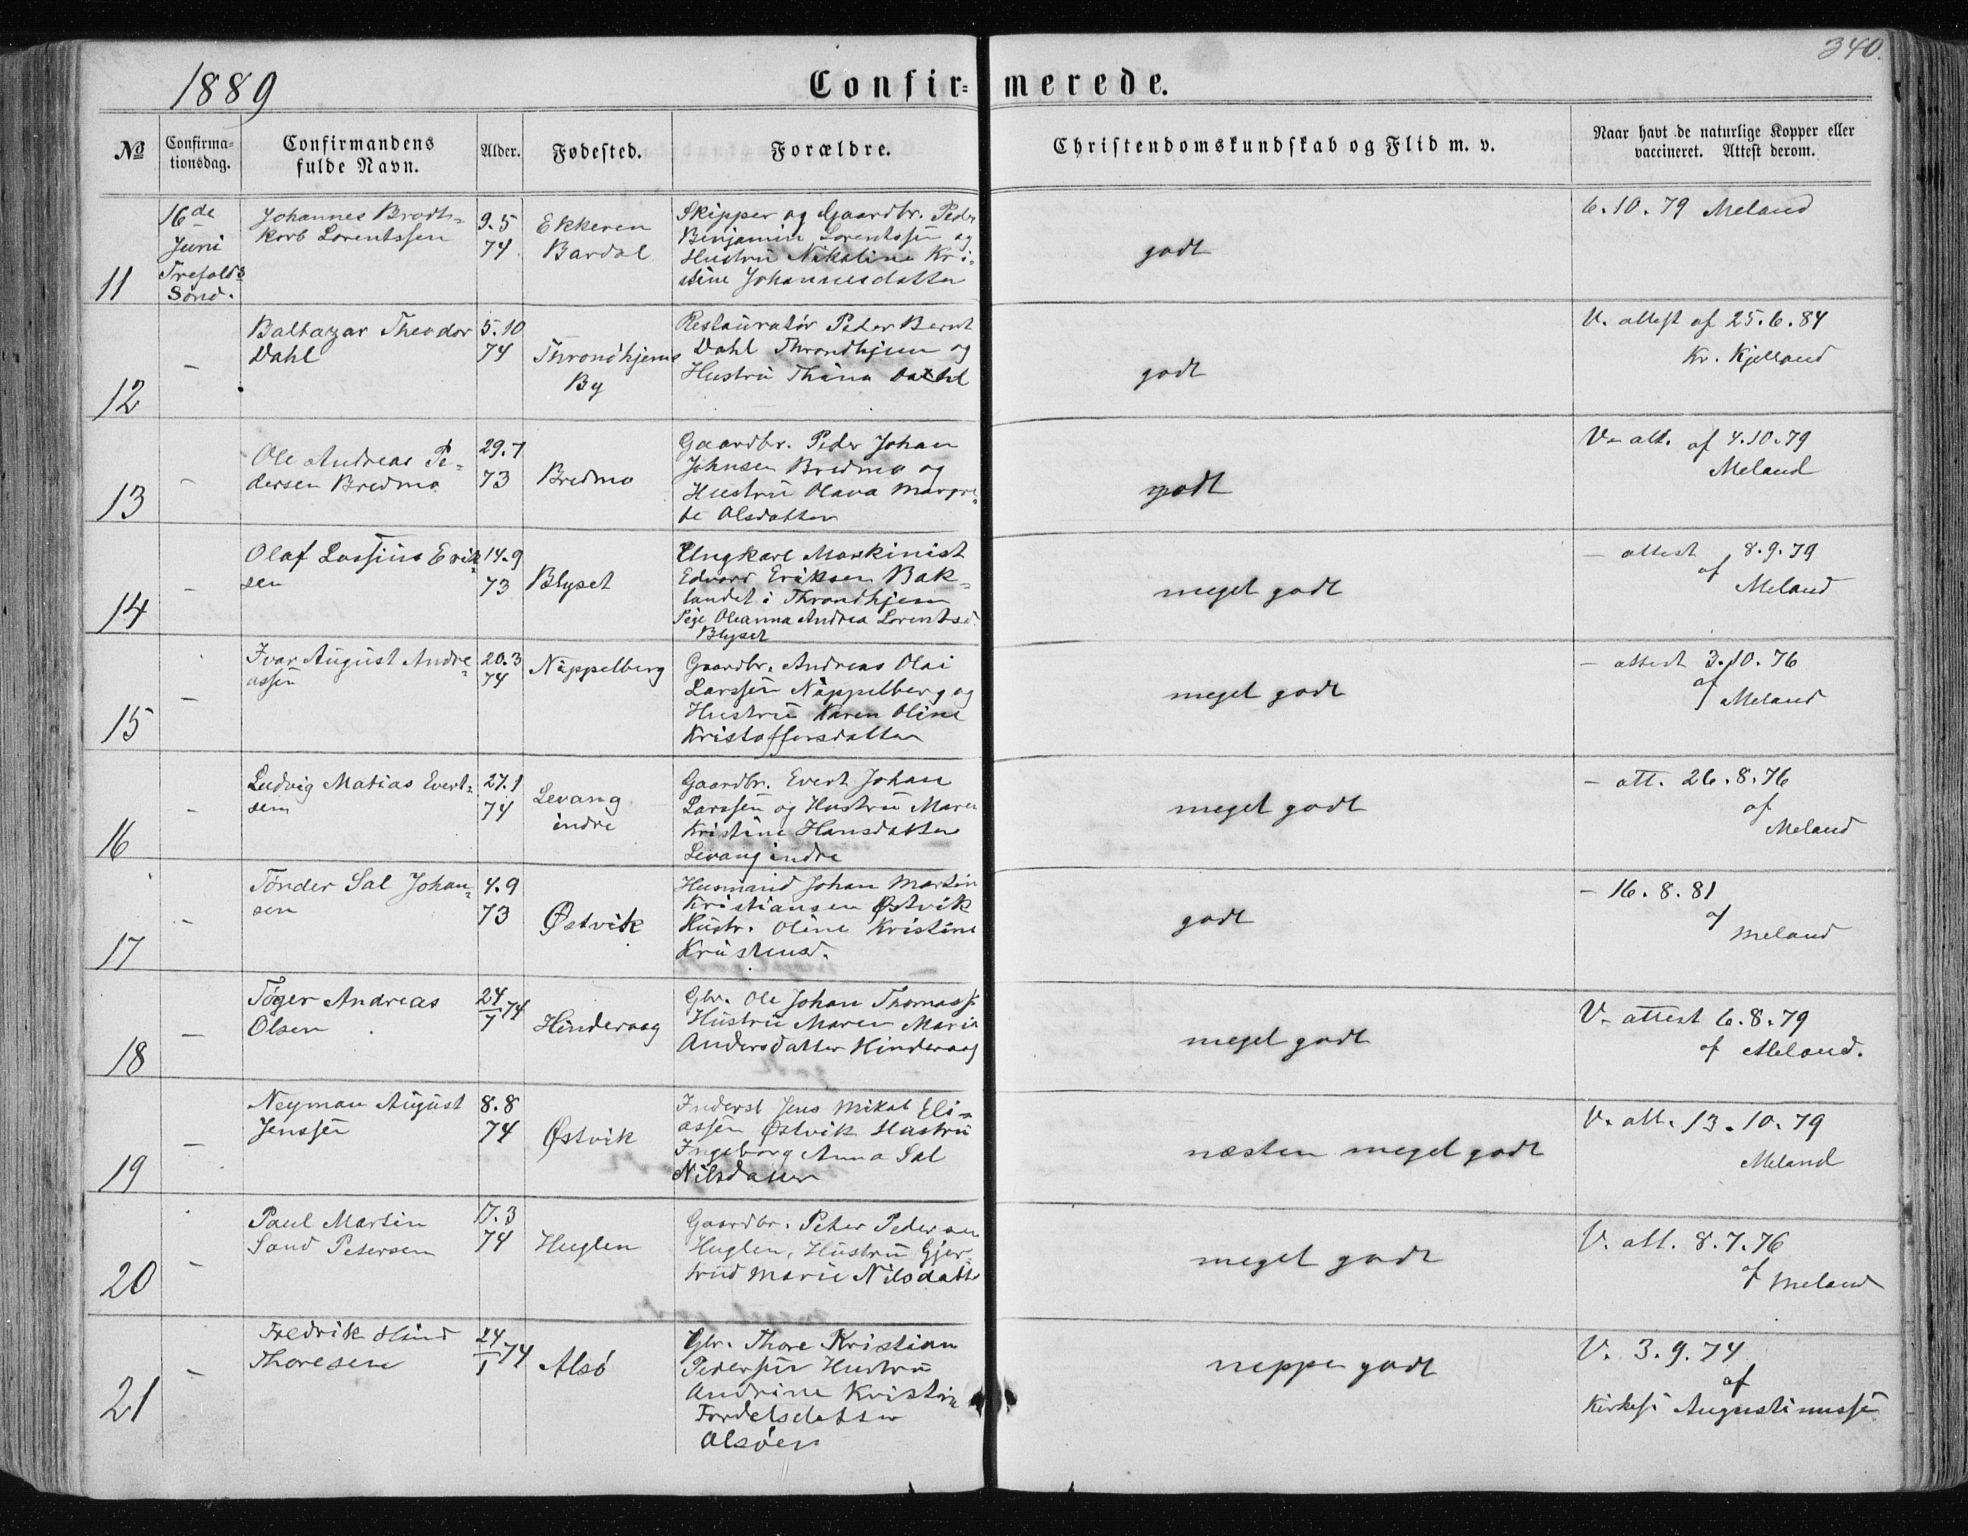 340.
1889
Confir- merede.
No
Confirma-
tionsdag.
Confirmandens
fulde Navn.
Alder.
Fødested.
Forældre.
Christendomskundskab og Flid m. v.
Naar havt de naturlige Kopper eller
vaccineret. Attest derom.
11
16de
Juni
Trefolds
Sønd.
Johannes Brodt-
korb Lorentssen
9.5
74
Ekkeren
Bardal
Skipper og Gaardbr. Peder
Benjamin Lorentssen og
Hustru Nikoline Kri-
stine Johannesdatter
godt
6.10.79 Meland
12
-
Baltazar Theodor
Dahl
5.10
74
Throndhjems
By
Restauratør Peder Bernt
Dahl Throndhjem og
Hustru Thina Dahl
godt
V. attest af 25.6.84
Kr. Kjelland
13
-
Ole Andreas Pe-
dersen Bredmo
29.7
73
Bredmo
Gaardbr. Peder Johan
Johnsen Bredmo og
Hustru Olava Margre-
te Olsdatter
godt
V- att. af 4.10.79
Meland
14
-
Olaf Lossius Erik-
sen
14.9
73
Blyset
Ungkarl Maskinist
Edvard Eriksen Bak-
landet i Throndhjem
Pige Oleanna Andrea Lorentsd
Blyset
meget godt
- attest 8.9.79
af
Meland
15
-
Ivar August Andre-
assen
20.3
74
Näppelberg
Gaardbr. Andreas Olai
Larssen Näppelberg og
Hustru Karen Oline
Kristoffersdatter
meget godt
- attest 3.10.76
af
Meland
16
-
Ludvig Matias Evert-
sen
27.1
74
Levang
indre
Gaardbr. Evert Johan
Larssen og Hustru Maren
Kristine Hansdatter
Levang indre
meget godt
- att. 26.8.76
af
Meland
17
-
Tønder Sal Johan-
sen
4.9
73
Østvik
Husmand Johan Martin
Kristiansen Østvik
Hustr. Oline Kristine
godt
- 16.8.81
af
Meland
18
-
Tøger Andreas
Olsen
24/7 74
Hinderaag
Gbr. Ole Johan Thomass.
Hustru Maren Maria
Andersdatter Hinderaag
meget godt
V- attest 6.8.79
af Meland.
19
-
Neyman August
Jenssen
8.8
74
Østvik
Inderst Jens Mikal Eli-
assen Østvik Hustru
Ingeborg Anna Sal
Nilsdatter
næsten meget godt
V. att. 13.10.79
Meland
20
-
Paul Martin
Sand Petersen
17.3
74
Huglen
Gaardbr. Peter Pedersen
Huglen, Hustru Gjer-
trud Marie Nilsdatte
meget godt
V. att. 8.7.76
af Meland
21
-
Fredrik Hind
Thoresen
24/1 74
Alsø
Gbr. Thore Kristian
Pederssen Hustru
Andrine Kristin
Fordelsdatter
Alsøen
neppe godt
V. 3.9.74
af
Kirkes. Augustinussen